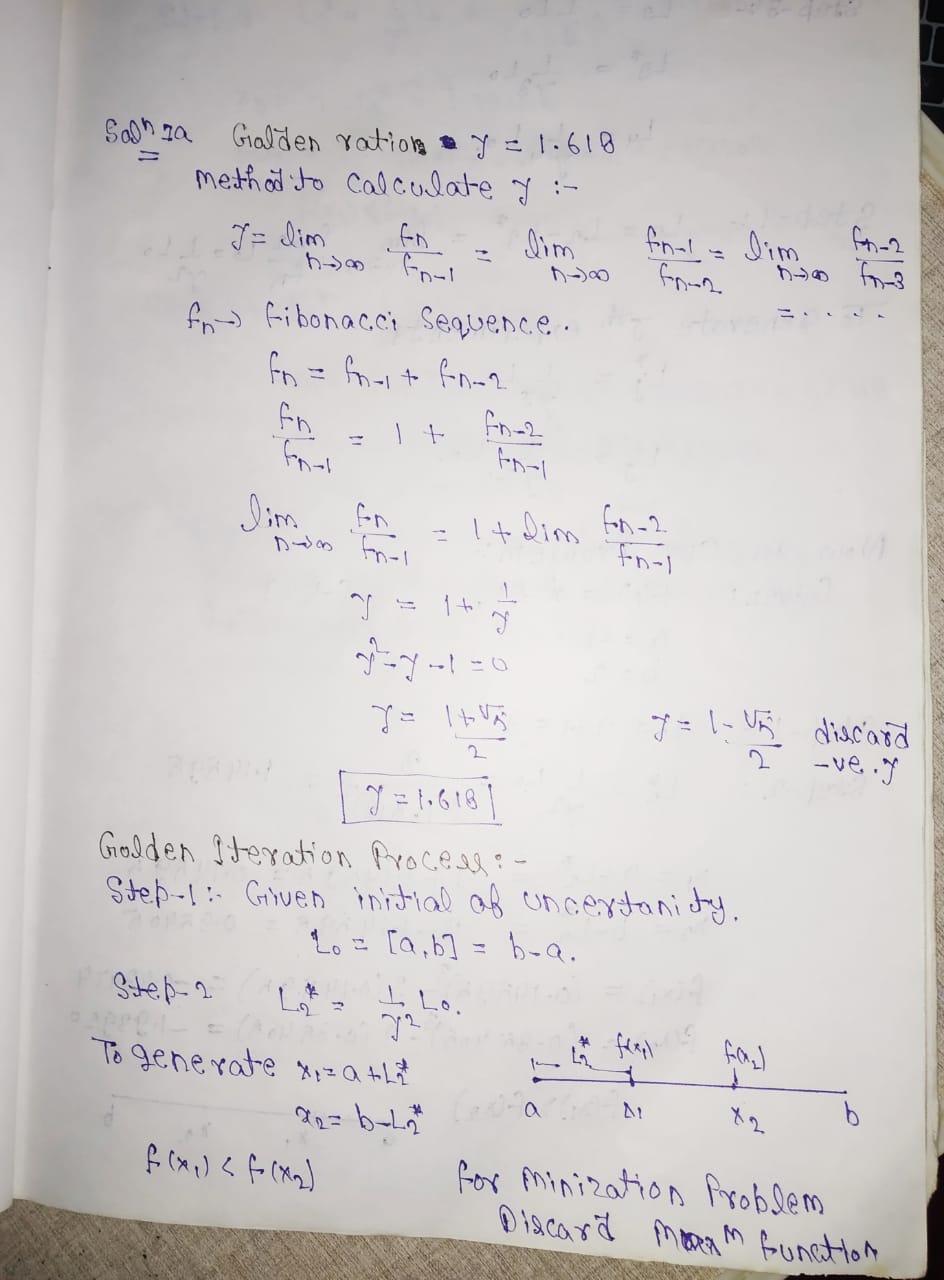 Solⁿ 1a Golden ration γ = 1.618
method to calculate γ :-
γ = lim n→∞ fn/fn-1 = lim n→∞ fn-1/fn-2 = lim n→∞ fn-2/fn-3
= ....
fn → fibonacci Sequence..
fn = fn-1 + fn-2
fn/fn-1 = 1 + fn-2/fn-1
lim n→∞ fn/fn-1 = 1 + lim fn-2/fn-1
γ = 1 + 1/γ
γ² - γ - 1 = 0
γ = 1+√5/2 γ = 1-√5/2 discard
-ve. γ
γ = 1.618
Golden Iteration Process :-
Step-1 :- Given initial of uncertanity.
L₀ = [a,b] = b-a.
Step-2 L₂* = 1/γ² L₀.
To generate x₁ = a + L₂*
x₂ = b - L₂*
L₂* f(x₁) f(x₂)
a x₁ x₂ b
f(x₁) < f(x₂) for minization Problem
Discard maxᵐ function